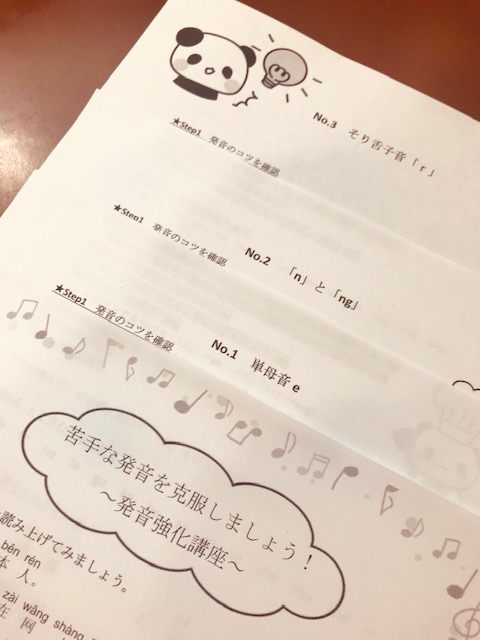 No.3 そり舌子音「r」
★Step1 発音のコツを確認
No.2 「n」と「ng」
★Step1 発音のコツを確認
No.1 単母音 e
★Step1 発音のコツを確認
苦手な発音を克服しましょう!
～発音強化講座～
読み上げてみましょう。
běn rén
本 人。
zài wǎng shàng
在 网